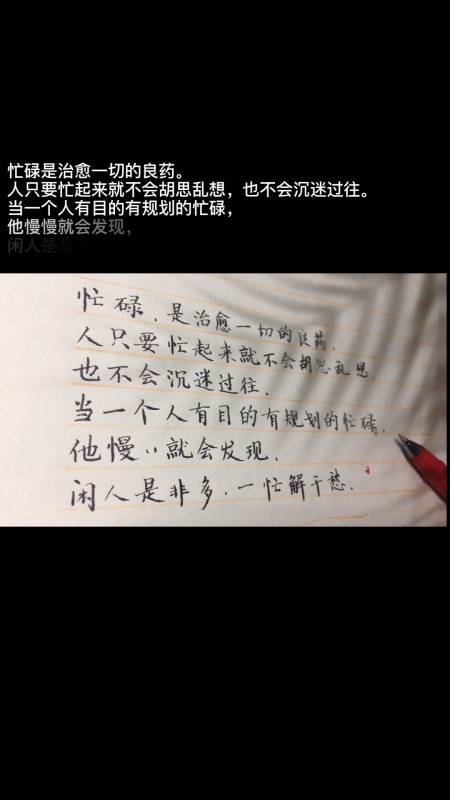 忙碌是治愈一切的良药。
人只要忙起来就不会胡思乱想，也不会沉迷过往。
当一个人有目的有规划的忙碌，
他慢慢就会发现，
闲人是非
忙碌，是治愈一切的良药，
人只要忙起来就不会胡思乱想，
也不会沉迷过往，
当一个人有目的有规划的忙碌，
他慢〃就会发现，
闲人是非多，一忙解千愁。